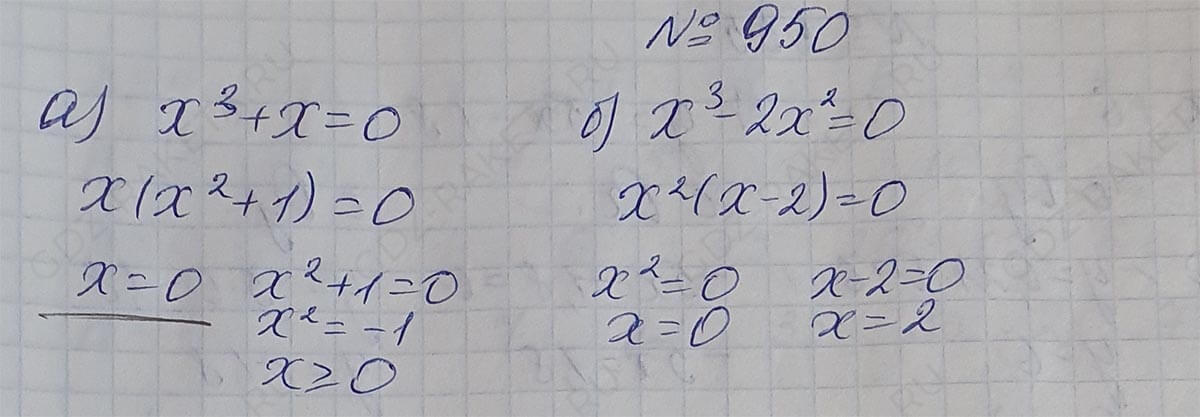 № 950
а) x³+x=0
x(x²+1)=0
x=0 x²+1=0
x²=-1
x≥0
б) x³-2x²=0
x²(x-2)=0
x²=0 x-2=0
x=0 x=2